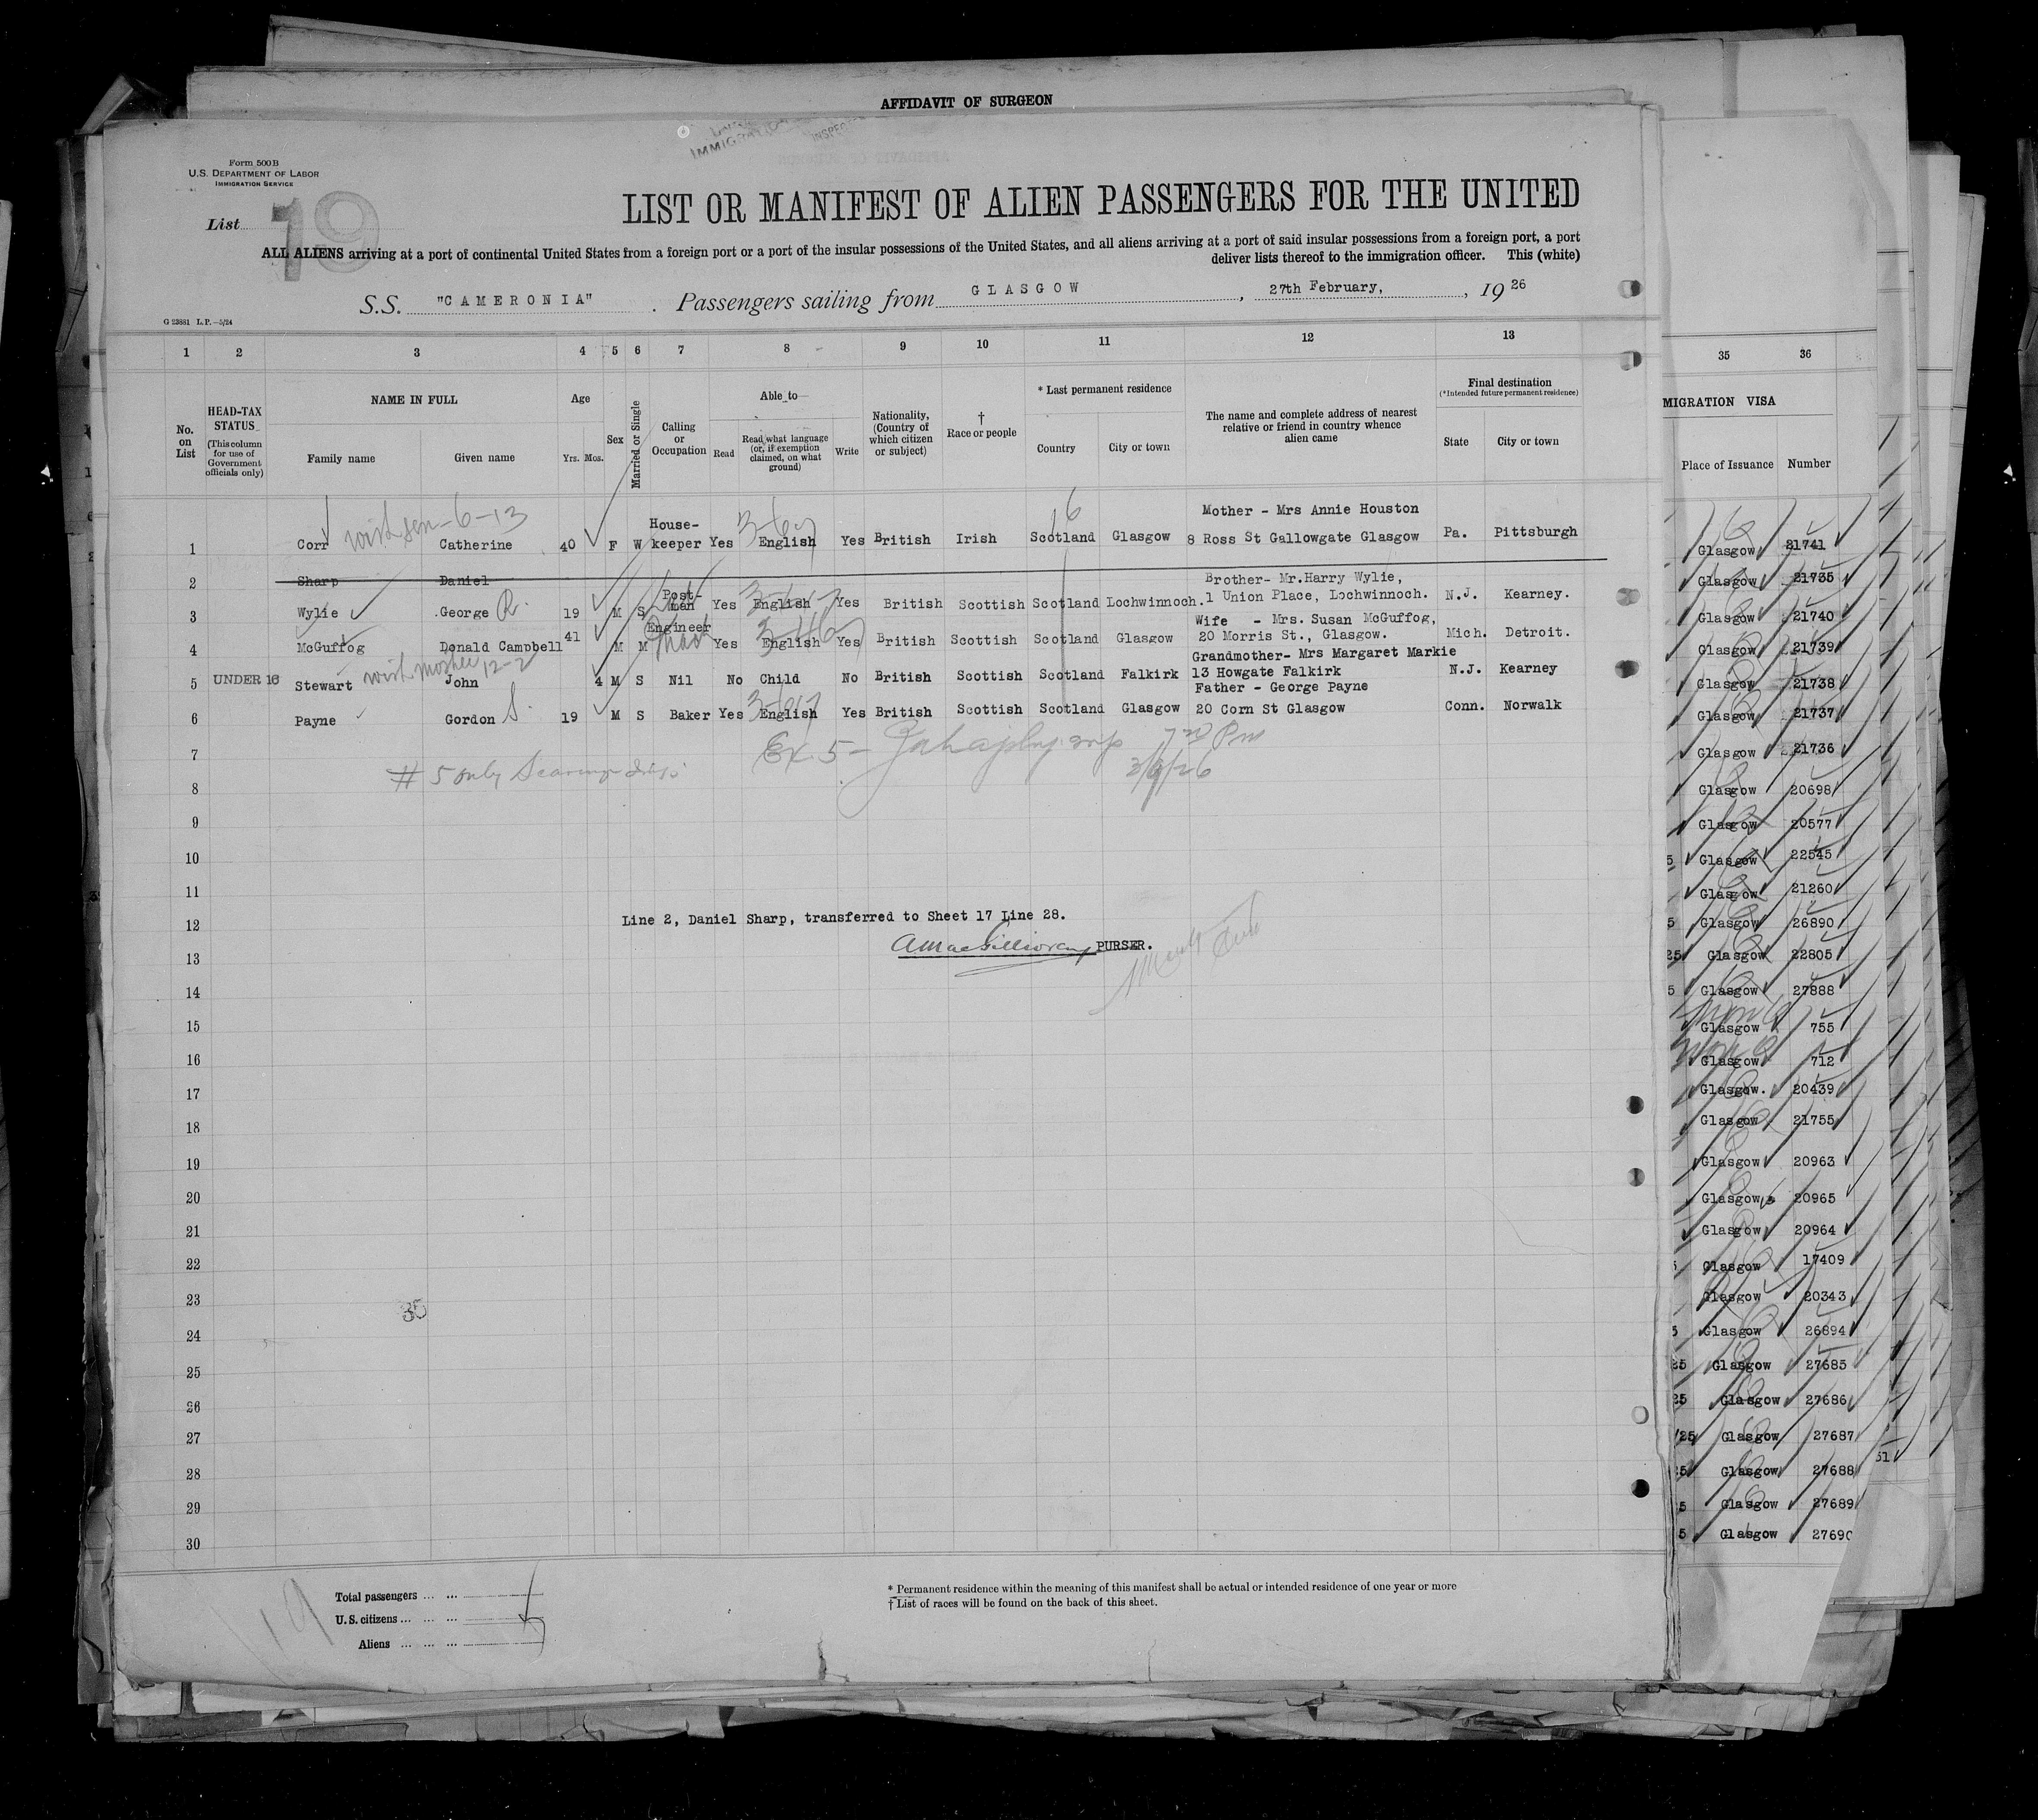 AFFIDAVIT OF SURGEON
IMMIGRATION
INSPEC
Form 500B
U.S. DEPARTMENT OF LABOR
IMMIGRATION SERVICE
List 19
LIST OR MANIFEST OF ALIEN PASSENGERS FOR THE UNITED
ALL ALIENS arriving at a port of continental United States from a foreign port or a port of the insular possessions of the United States, and all aliens arriving at a port of said insular possessions from a foreign port, a port
deliver lists thereof to the immigration officer. This (white)
S.S. "CAMERONIA" . Passengers sailing from GLASGOW , 27th February, , 1926
G 23881 L.P.—5/24
1 2 3 4 5 6 7 8 9 10 11 12 13
No. on List
HEAD-TAX STATUS
(This column for use of Government officials only)
NAME IN FULL
Family name Given name
Age
Yrs. Mos.
Sex
Married or Single
Calling or Occupation
Able to
Read
Read what language (or, if exemption claimed, on what ground)
Write
Nationality, (Country of which citizen or subject)
† Race or people
* Last permanent residence
Country City or town
The name and complete address of nearest relative or friend in country whence alien came
Final destination
(*Intended future permanent residence)
State City or town
1 Corr with sen-6-13 Catherine 40 F W House-keeper Yes English Yes British Irish Scotland Glasgow Mother - Mrs Annie Houston
8 Ross St Gallowgate Glasgow Pa. Pittsburgh
2 Sharp Daniel
3 Wylie George R. 19 M S Post-man Yes English Yes British Scottish Scotland Lochwinnoch. Brother- Mr.Harry Wylie,
1 Union Place, Lochwinnoch. N.J. Kearney.
4 McGuffog Donald Campbell 41 M M Engineer Yes English Yes British Scottish Scotland Glasgow Wife - Mrs. Susan McGuffog,
20 Morris St., Glasgow. Mich. Detroit.
5 UNDER 16 Stewart with mother 12-2 John 4 M S Nil No Child No British Scottish Scotland Falkirk Grandmother- Mrs Margaret Markie
13 Howgate Falkirk N.J. Kearney
6 Payne Gordon S. 19 M S Baker Yes English Yes British Scottish Scotland Glasgow Father - George Payne
20 Corn St Glasgow Conn. Norwalk
7
Ex. 5 -
3/9/26
# 5 only
8
9
10
11
12
Line 2, Daniel Sharp, transferred to Sheet 17 Line 28.
AMacGillivray PURSER.
13
14
15
16
17
18
19
20
21
22
23
35
24
25
26
27
28
29
30
19
Total passengers
U.S. citizens
Aliens
* Permanent residence within the meaning of this manifest shall be actual or intended residence of one year or more
† List of races will be found on the back of this sheet.
35 36
MIGRATION VISA
Place of Issuance Number
Glasgow 21741
Glasgow 21735
Glasgow 21740
Glasgow 21739
Glasgow 21738
Glasgow 21737
Glasgow 21736
Glasgow 20698
Glasgow 20577
5 Glasgow 22545
Glasgow 21260
5 Glasgow 26890
25 Glasgow 22805
5 Glasgow 27888
Glasgow 755
Glasgow 712
Glasgow. 20439
Glasgow 21755
Glasgow 20963
Glasgow 20965
Glasgow 20964
Glasgow 17409
Glasgow 20343
5 Glasgow 26894
25 Glasgow 27685
25 Glasgow 27686
/25 Glasgow 27687
25 Glasgow 27688
5 Glasgow 27689
5 Glasgow 27690
51